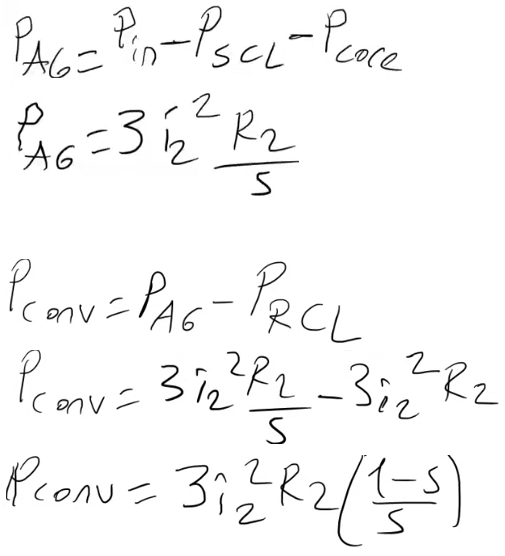 P_AG = P_in − P_SCL − P_core
P_AG = 3 i₂² R₂/s
P_conv = P_AG − P_RCL
P_conv = 3 i₂² R₂/s − 3 i₂² R₂
P_conv = 3 i₂² R₂ ((1−s)/s)